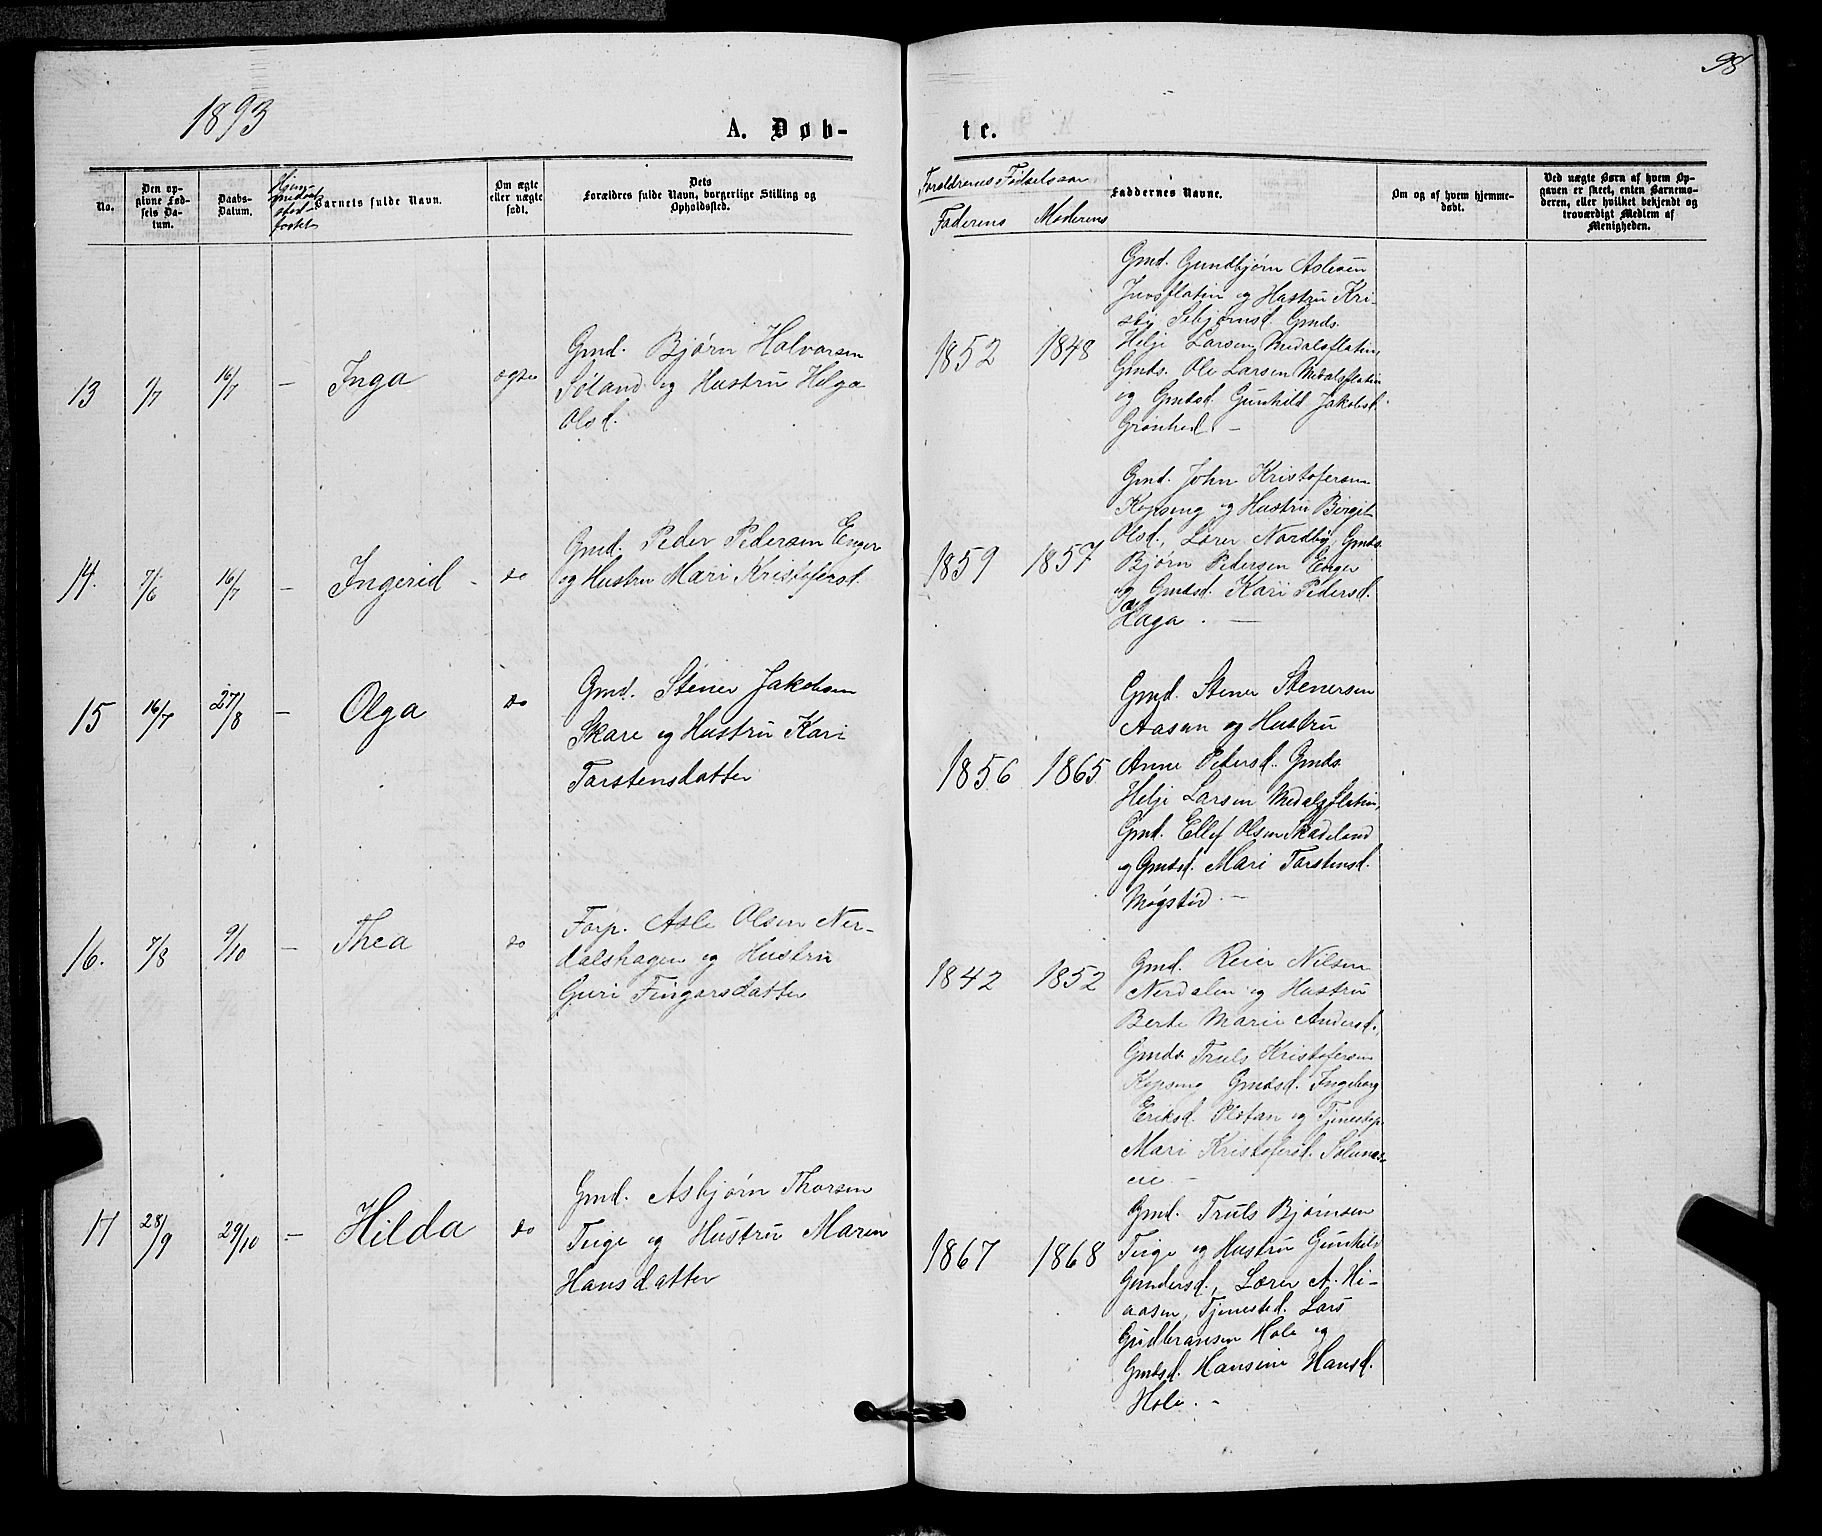 98
1893
A. Døb-
te.
No.
Den op-
givne Fød-
sels Da-
tum.
Daabs-
Datum.
Barnets fulde Navn.
Om ægte
eller uægte
født.
Dets
Forældres fulde Navn, borgerlige Stilling og
Opholdssted.
Forældrenes Fødselsaar
Faderens Moderens
Faddernes Navne.
Om og af hvem hjemme-
døbt.
Ved uægte Børn af hvem Op-
gaven er skeet, enten Barnemo-
deren, eller hvilket bekjendt og
troværdigt Medlem af
Menigheden.
13 1/7 16/7 – Inga ægte
Gmd. Bjørn Halvorsen
Søland og Hustru Helga
Olsd.
1852 1848
Gmd. Gundbjørn Aslesen
Juvsflatin og Hustru Kri-
sti Sebjørnsd. Gmds.
Helje Larsen Medalsflatin,
Gmds. Ole Larsen Medalsflatin
og Gmdsd. Gunhild Jakobsd.
Grønhed. –
14. 7/6 16/7 – Ingerid - do
Gmd. Peder Pedersen Enger
og Hustru Mari Kristofersd.
1859 1857
Gmd. John Kristofersen
Kopseng og Hustru Birgit
Olsd., Lærer Nordby, Gmds.
Bjørn Pedersen Enger
og Gmdsd. Kari Pedersd.
Haga. –
15 16/7 27/8 – Olga do
Gmd. Stener Jakobsen
Skare og Hustru Kari
Torstensdatter
1856 1865
Gmd. Stener Stenersen
Aasen og Hustru
Anne Pedersd. Gmds.
Helje Larsen Medalsflatin,
Gmd. Ellef Olsen Skadeland
og Gmdsd. Mari Torstensd.
Møgstød. –
16. 7/8 9/10 – Thea do
Forp. Asle Olsen Ner-
dalshagen og Hustru
Guri Fingarsdatter
1842 1852
Gmd. Reier Nilsen
Nerdalen og Hustru
Berte Marie Andersd.,
Gmds Truls Kristofersen
Kopseng Gmdsd. Ingeborg
Eriksd. Pløtan og Tjenestep.
Mari Kristofersd. Solemo-
eie. –
17 28/9 29/10 – Hilda do
Gmd. Asbjørn Thorsen
Teige og Hustru Maren
Hansdatter
1867 1868
Gmd. Truls Bjørnsen
Teige og Hustru Gunhild
Gundersd., Lærer A. Hi-
aasen, Tjenested. Lars
Gudbransen Hole og
Gmdsd. Hansine Hansd.
Hole. –